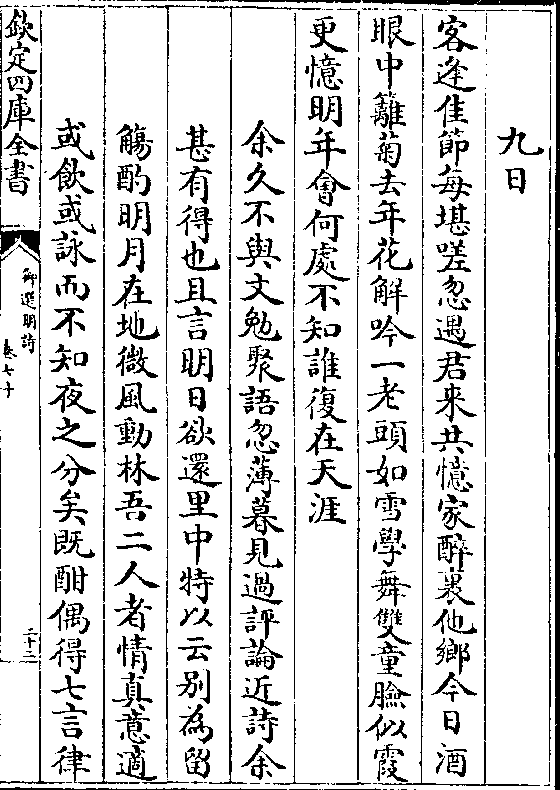 九日
客逢佳節每堪嗟忽遇君来共憶家醉裏他鄉今日酒
眼中籬菊去年花解吟一老頭如雪學舞雙童臉似霞
更憶明年會何處不知誰復在天涯
余久不與文勉聚語忽薄暮見過評論近詩余
甚有得也且言明日欲還里中特以云别為留
觴酌明月在地微風動林吾二人者情真意適
或飲或詠而不知夜之分矣既酣偶得七言律
欽定四庫全書
御選明詩
卷七十
二十三